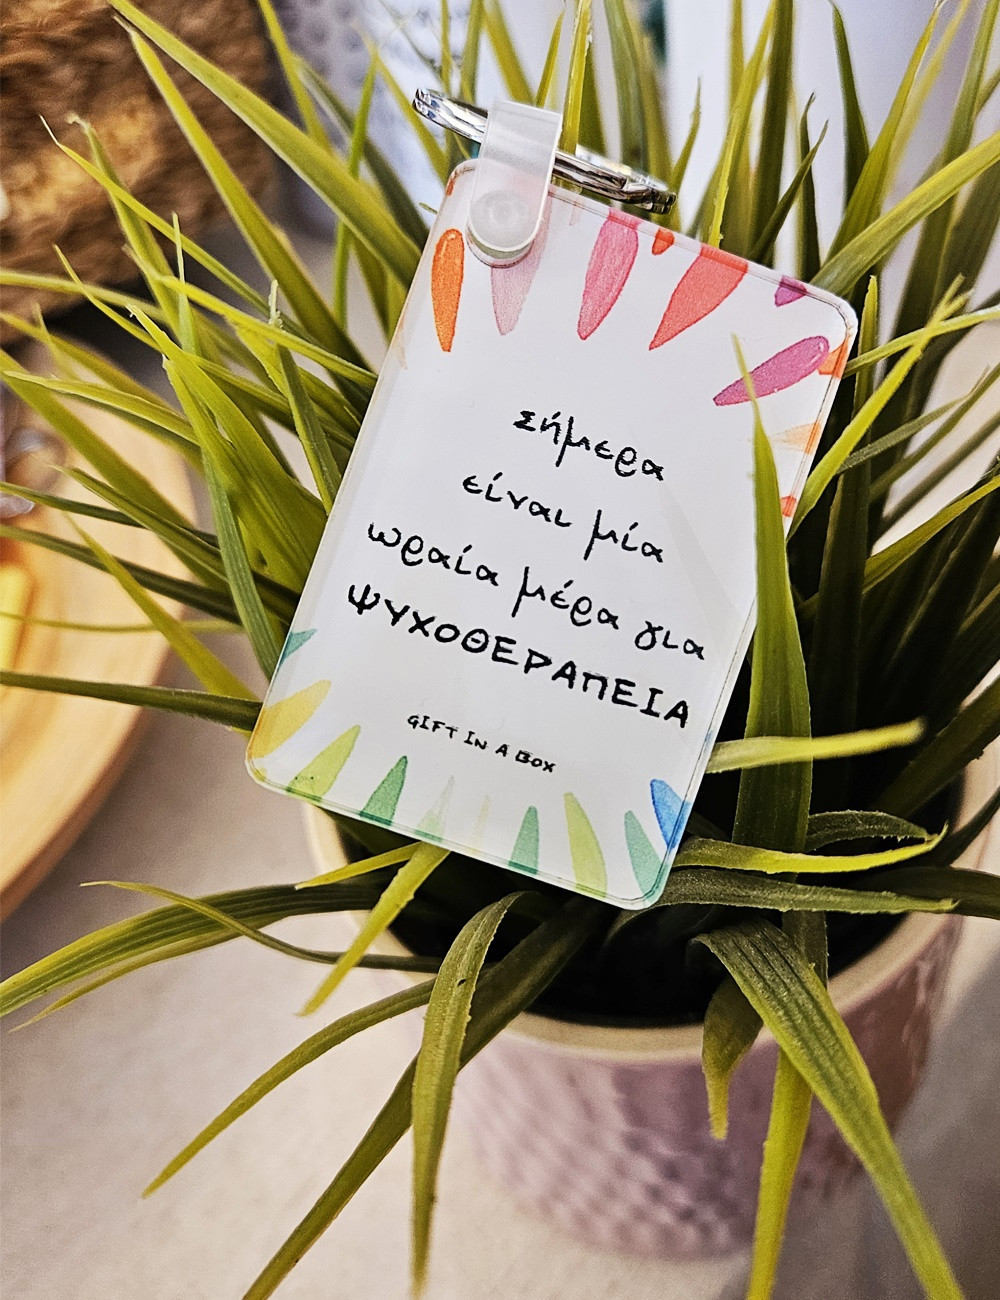 Σήμερα
είναι μία
ωραία μέρα για
ΨΥΧΟΘΕΡΑΠΕΙΑ
GIFT IN A BOX